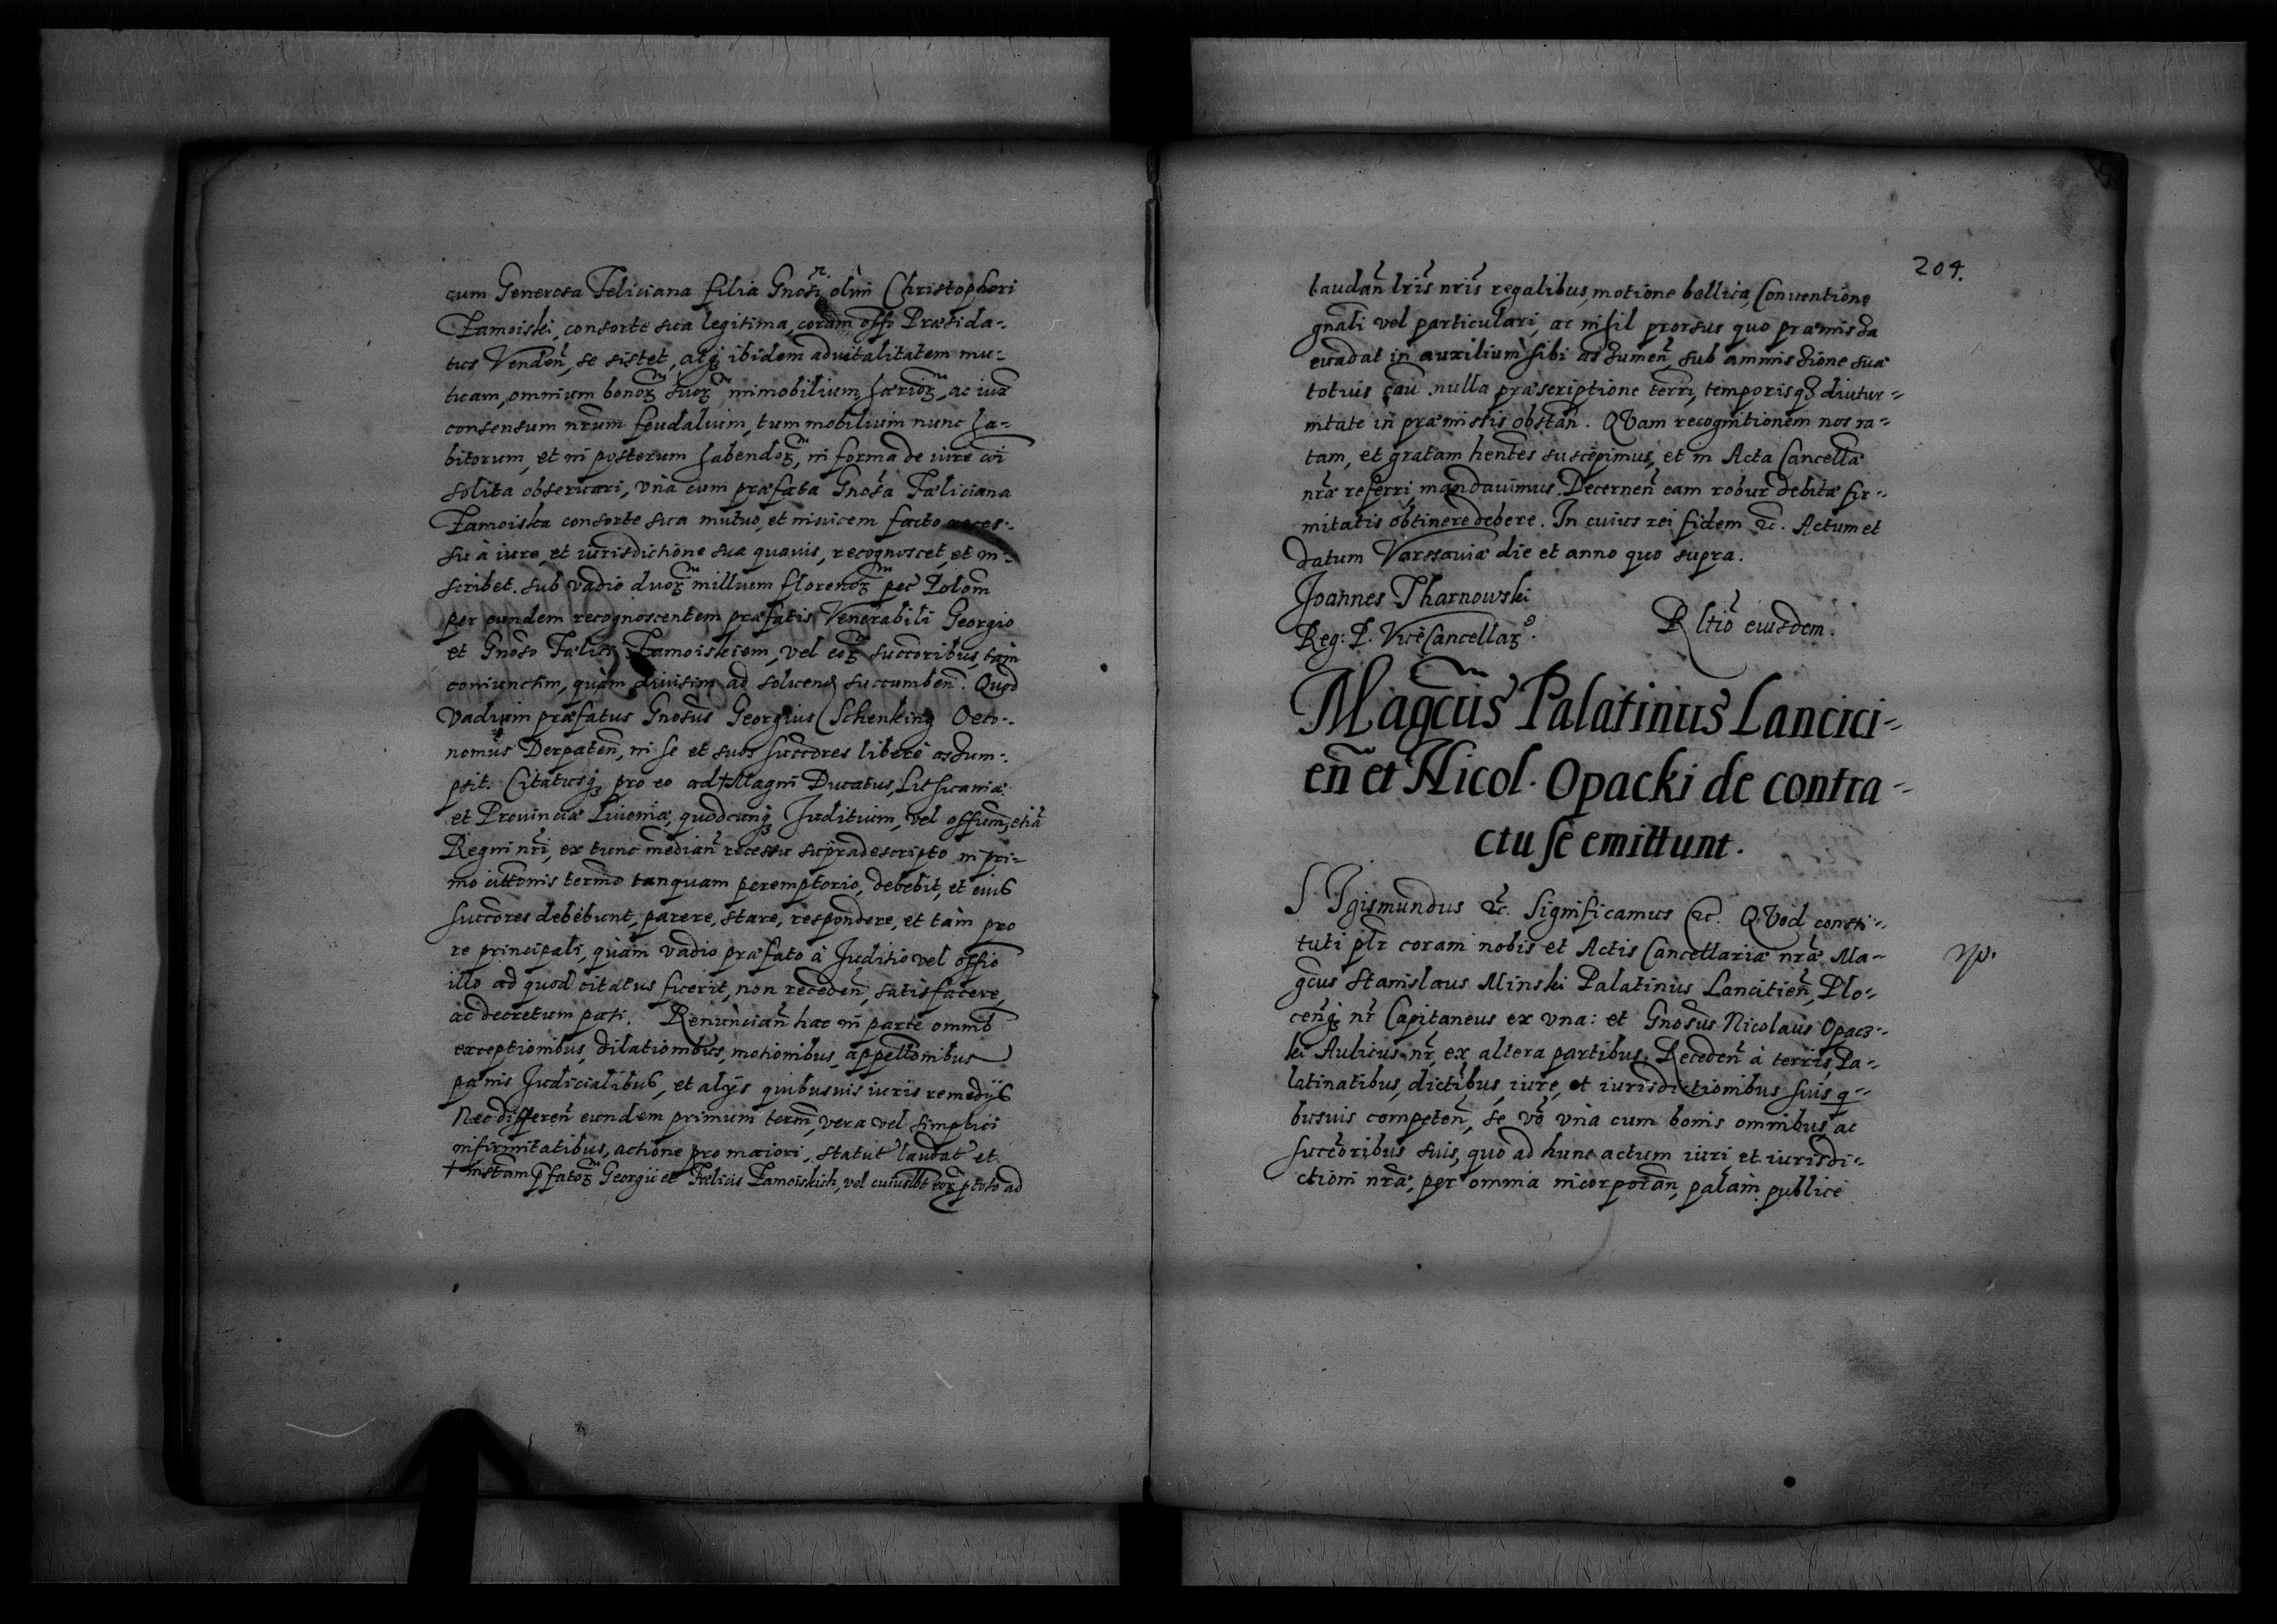 cum Generosa Feliciana filia Gnosi olim Christophori
Zamoiski, consorte sua legitima, coram offo Præsida-
tus Venden, se sistet, atq ibidem advitalitatem mu-
tuam, omnium bonoꝝ suoꝝ immobilium, hærioꝝ, ac iuxa
consensum nrum feudalium, tum mobilium nunc ha-
bitorum, et in posterum habendoꝝ, in forma de iure coi
solita obseruari, vna cum præfata Gnosa Fæliciana
Zamoiska consorte sua mutuo, et inuicem facto reces-
su à iure, et iurisdictione sua quauis, recognoscet, et in-
scribet. sub vadio duoꝝ millium florenoꝝ pec Polom
per eundem recognoscentem præfatis Venerabili Georgio
et Gnoso Fælici Zamoiskiem, vel eoꝝ succoribus, tam
coniunctim, quàm diuisim ad soluend succumben. Quod
vadium præfatus Gnosus Georgius Schenking Oeco-
nomus Derpaten, in se et suos succores liberè assum-
psit. Citatusq pro eo ad † Magni Ducatus Lithuaniæ
et Prouinciæ Liuoniæ, quodcunq Juditium, vel offium, etiā
Regni nri, ex tunc median recessu supradescripto in pri-
mo cittonis termo tanquam peremptorio, debebit, et eius
succores debebunt, parere, stare, respondere, et tàm pro
re principali, quàm vadio præfato à Juditio vel offio
illo ad quod citatus fuerit, non receden, satisfacere,
ac decretum pati. Renuncian hac in parte omnib
exceptionibus, dilationibus, motionibus, appellonibus
pænis Judicialibus, et alijs quibusuis iuris remedijs
Nec differen eundem primum term, vera vel simplici
infirmitatibus, actione pro maiori, statut laudat et
† instam pfatoꝝ Georgii et Fælicis Zamoiskich, vel cuiuslbt eoꝝ ptoto ad
204.
laudan lris nris regalibus, motione bellica, Conuentione
gnali vel particulari, ac nihil prorsus quo præmissa
euadat in auxilium sibi assumen, sub ammissione suæ
totius cau nulla præscriptione terri, temporisqȝ diutur-
nitate in præmissis obstan. QVam recognitionem nos ra-
tam, et gratam hentes suscepimus, et in Acta Cancellæ
nræ referri mandauimus. Decernen eam robur debitæ fir-
mitatis obtinere debere. In cuius rei fidem &c. Actum et
datum Varssauiæ die et anno quo supra.
Joannes Tharnowski
Reg: P. ViceCancellaꝝ. Rltio eiusdem.
Magcus Palatinus Lancici-
en et Nicol. Opacki de contra-
ctu se emittunt.
SIgismundus &c. Significamus &c. QVod consti-
tuti plr coram nobis et Actis Cancellariæ nræ Ma-
gcus Stanislaus Minski Palatinus Lancitien, Plo-
cenq nr Capitaneus ex vna: et Gnosus Nicolaus Opacz-
ki Aulicus nr, ex altera partibus. Receden à terris, Pa-
latinatibus, dictibus, iure, et iurisdictionibus suis q-
busuis competen, se vo vnà cum bonis omnibus ac
succoribus suis, quo ad hunc actum iuri et iurisdi-
ctioni nræ, per omnia incorporan, palàm publicè